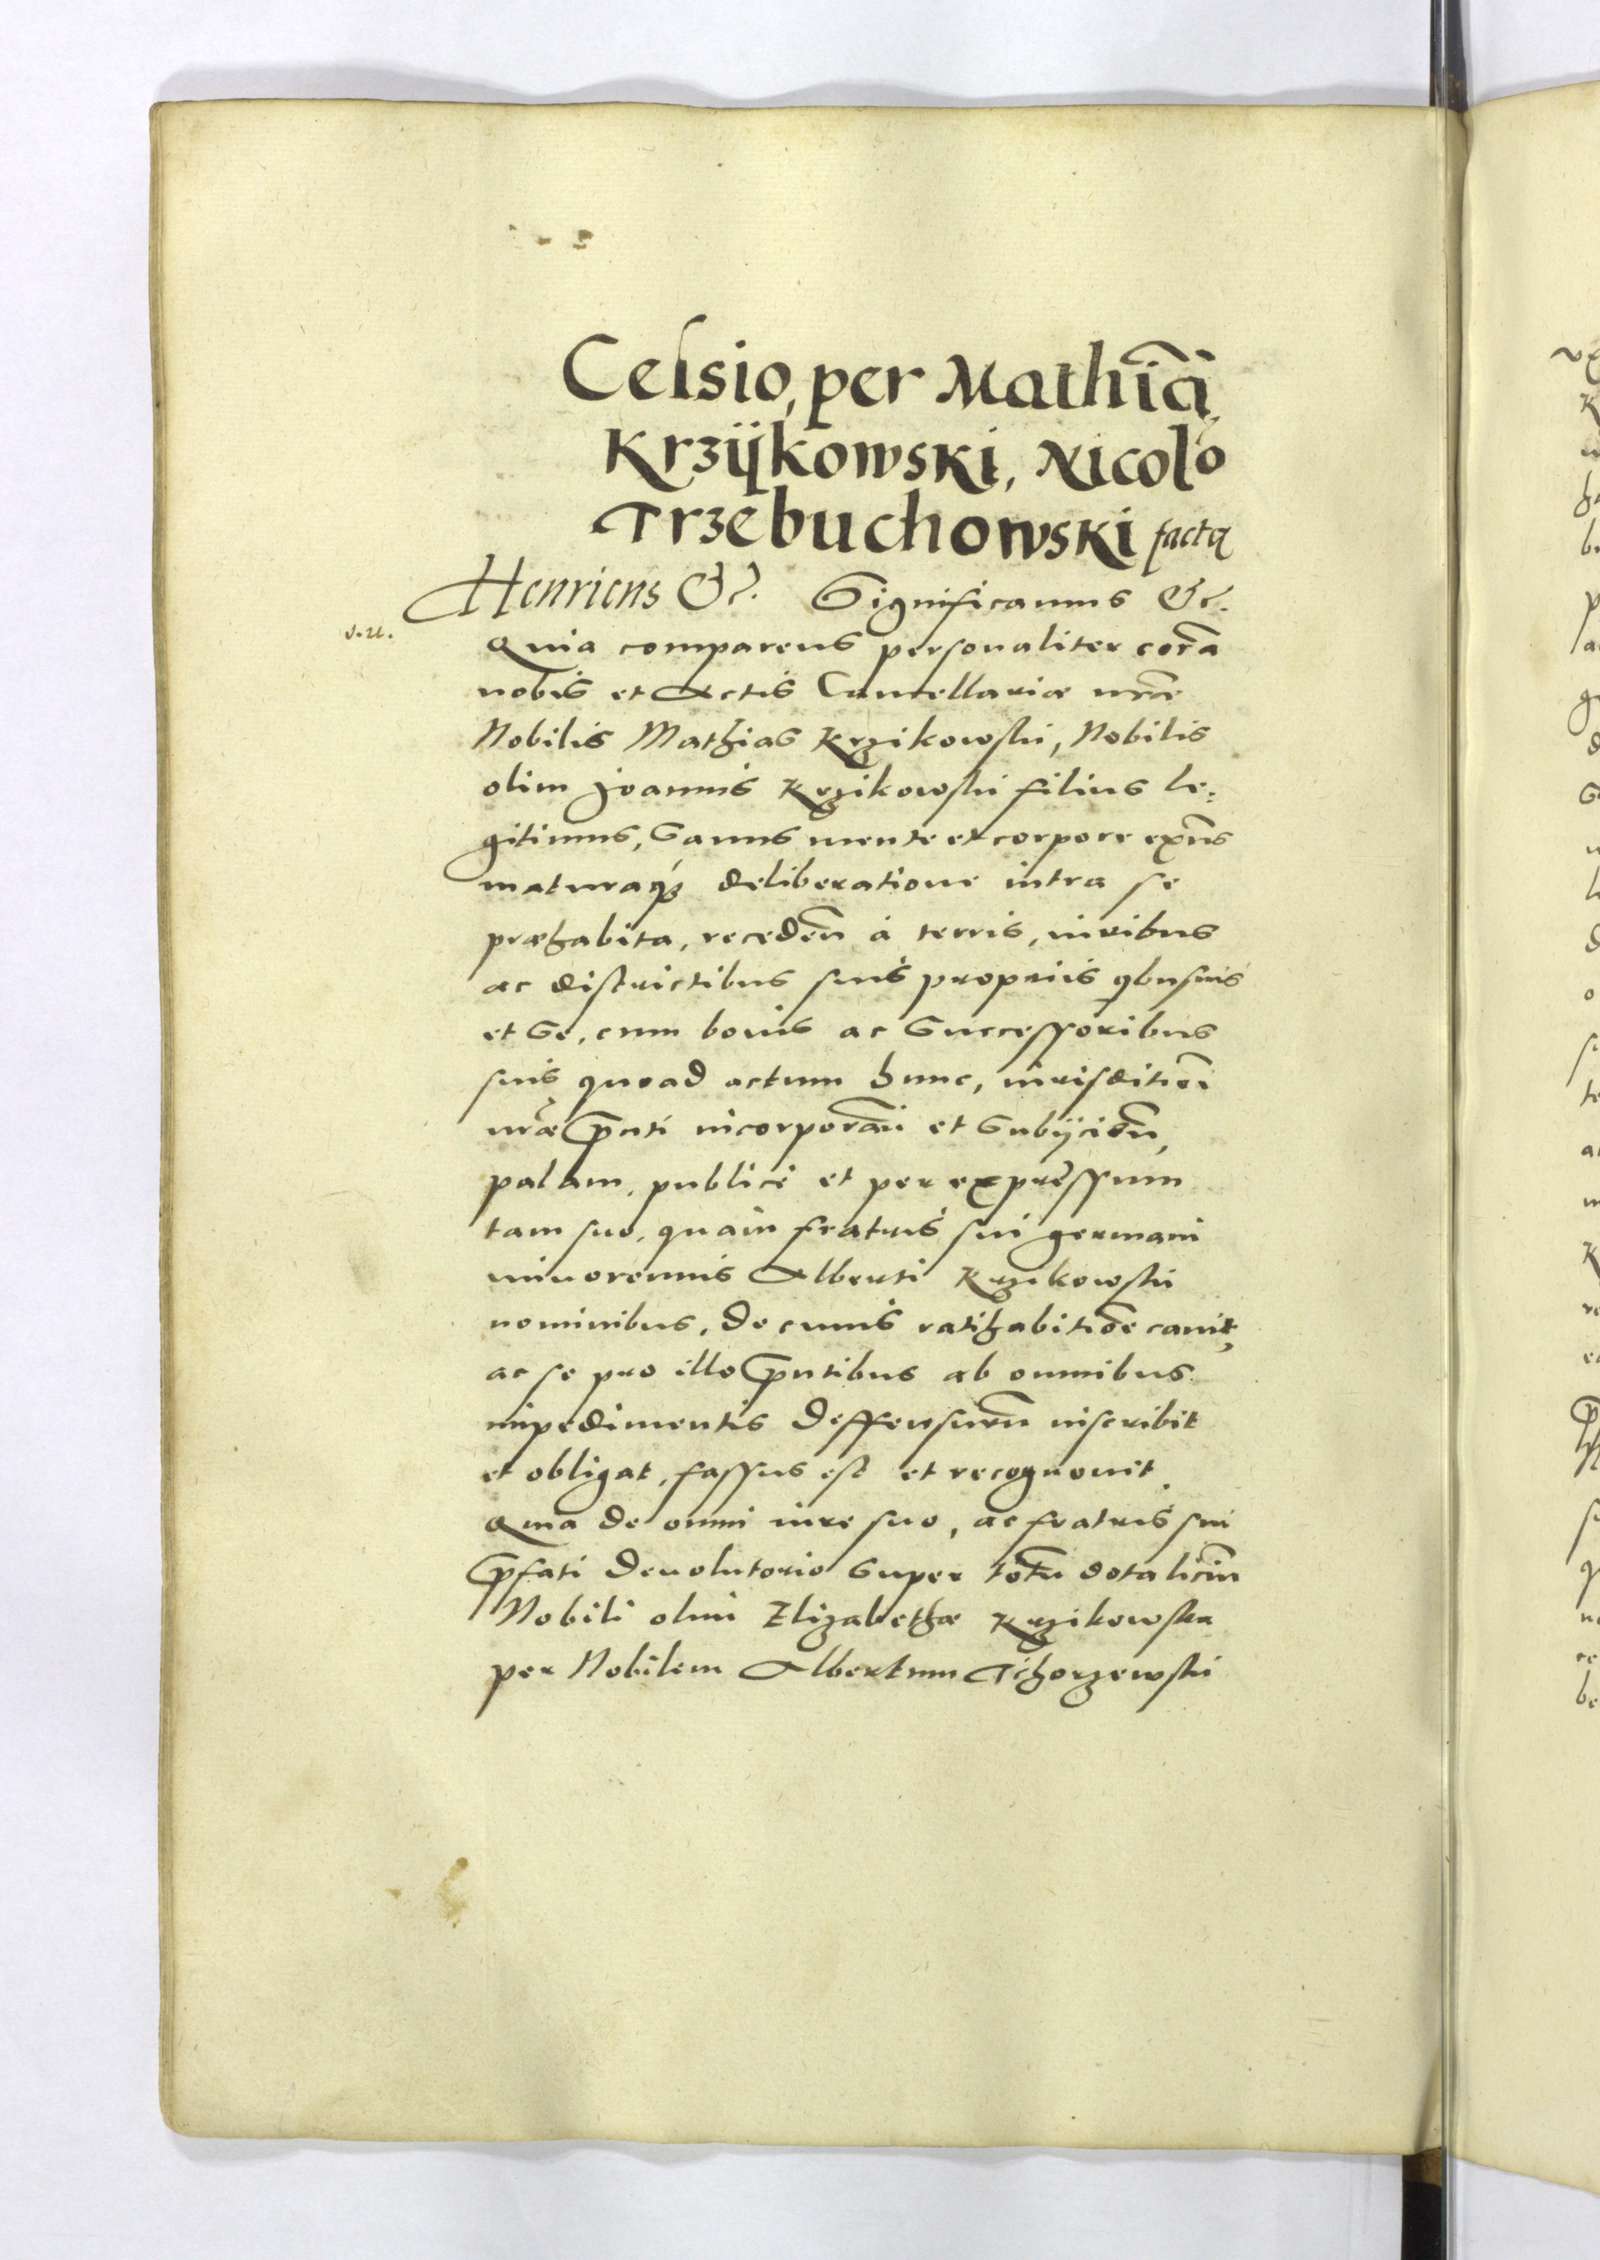 Celsio, per Mathiã
Krzÿkowski, Nicolo
Trzebuchowski facta
Henricus &c. Significamus &c.
Quia comparens personaliter corã
nobis et Actis Cancellariæ nrãe
Nobilis Mathias Krzikowski, Nobilis
olim Joannis Krzikowski filius le:
gitimus, Sanus mente et corpore exñs
maturaq́ꝫ deliberatione intra se
præhabita, recedeñ à terris, iuribus
ac districtibus suis proprijs qbusuis
et Se, cum bonis ac Successoribus
suis quoad actum hunc, iurisditioni
nrãe pñti incorporañ et Subijcieñ,
palam, publicè et per expressum
tam suo, quàm fratris sui germani
minorennis Alberti Krzikowski
nominibus, de cuius ratihabitiõe cauit,
ac se pro illo pñtibus ab omnibus
impedimentis deffensurũ inscribit
et obligat, fassus est et recognouit
Quia de omni iure suo, ac fratris sui
p̃fati deuolutorio super totũ dotaliciũ
Nobili olim Elizabethæ Krzikowska
per Nobilem Albertum Tchorzewski